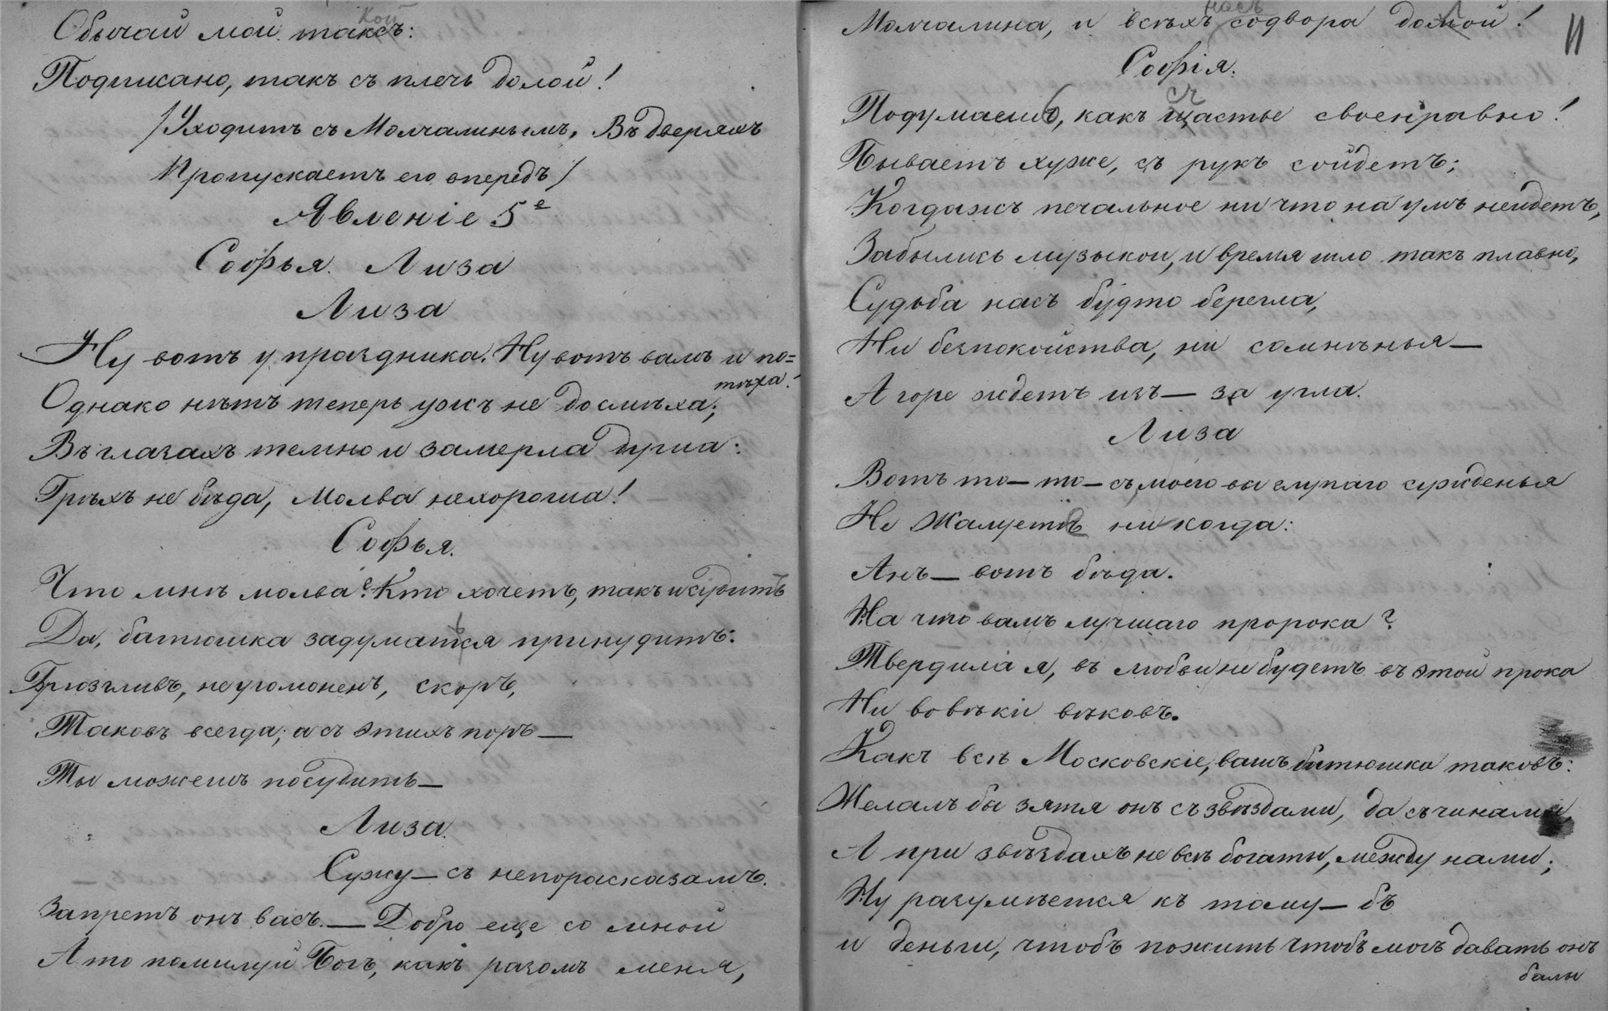 Обычай мой такой:
Подписано, такъ съ плечь долой!
/Уходитъ съ Молчалинымъ, Въ дверяхъ
Пропускаетъ его впередъ/
Явленіе 5е
Софья. Лиза
Лиза
Ну вотъ у праздника. Ну вотъ вамъ и по=
тѣха!
Однако нѣтъ теперь ужъ не до смѣха;
Въ глазахъ темно и замерла душа:
Грѣхъ не бѣда, Молва нехороша!
Софья.
Что мнѣ молва? Кто хочетъ, такъ и судитъ
Да, батюшка задуматься принудитъ:
Брюзгливъ, неугомоненъ, скоръ,
Таковъ всегда; а съ этихъ поръ —
Ты можешь посудить —
Лиза.
Сужу — съ не по расказамъ.
Запретъ онъ васъ. — Добро еще со мной
А то помилуй Богъ, какъ разомъ меня,
11
Молчалина, и всѣхъ насъ содвора долой!
Софія.
Подумаешь, какъ счастье своенравно!
Бываетъ хуже, съ рукъ сойдетъ;
Когдажъ печальное ни что на умъ нейдетъ,
Забылись музыкой, и время шло такъ плавно,
Судьба насъ будто берегла,
Ни безпокойства, ни сомнѣнья —
А горе ждетъ изъ — за угла.
Лиза
Вотъ то — то — съ, моего вы глупаго сужденья
Не Жалуете ни когда:
Анъ — вотъ бѣда.
На что вамъ лучшаго пророка?
Твердила я, въ любви не будетъ въ этой прока
Ни вовѣки вѣковъ.
Какъ всѣ Московскіе, вашъ батюшка таковъ:
Желалъ бы зятя онъ съ звѣздами, да съ чинами,
А при звѣздахъ не всѣ богаты, между нами;
Ну разумѣется къ тому — бъ
и деньги, чтобъ пожить чтобъ могъ давать онъ
балы